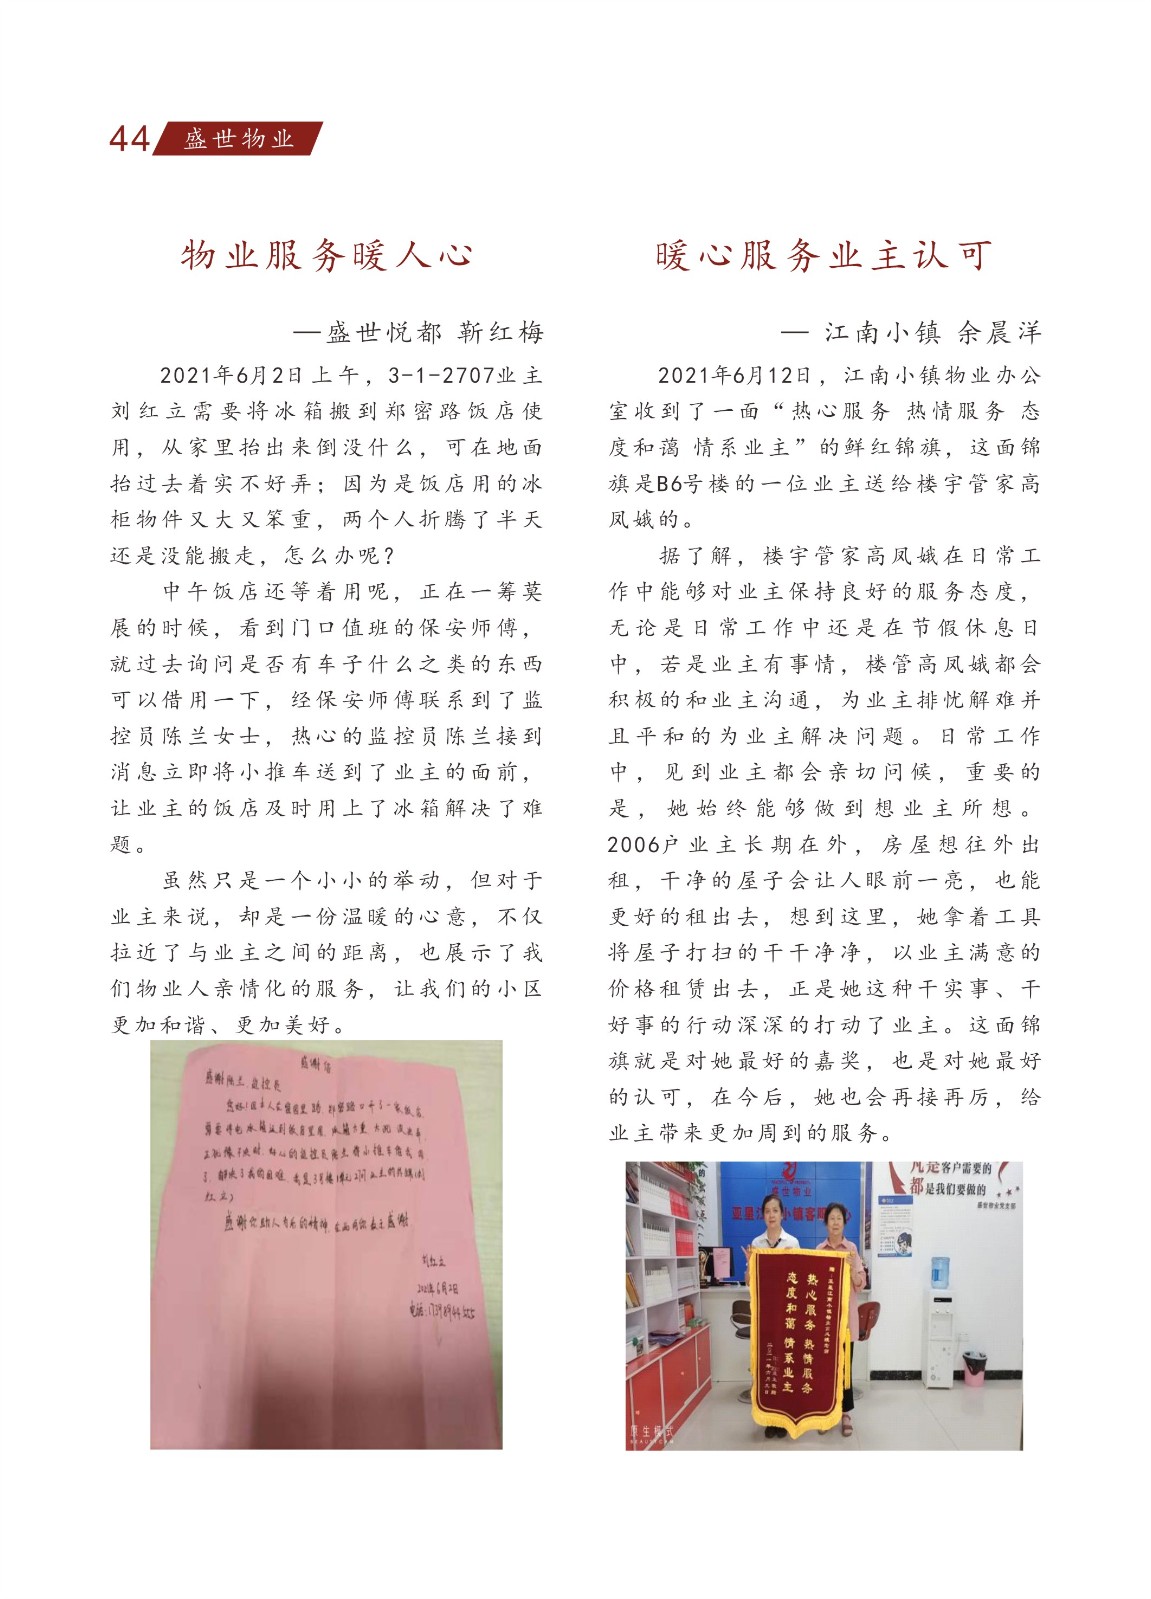 44 盛世物业
物业服务暖人心
—盛世悦都 靳红梅
2021年6月2日上午，3-1-2707业主
刘红立需要将冰箱搬到郑密路饭店使
用，从家里抬出来倒没什么，可在地面
抬过去着实不好弄；因为是饭店用的冰
柜物件又大又笨重，两个人折腾了半天
还是没能搬走，怎么办呢？
中午饭店还等着用呢，正在一筹莫
展的时候，看到门口值班的保安师傅，
就过去询问是否有车子什么之类的东西
可以借用一下，经保安师傅联系到了监
控员陈兰女士，热心的监控员陈兰接到
消息立即将小推车送到了业主的面前，
让业主的饭店及时用上了冰箱解决了难
题。
虽然只是一个小小的举动，但对于
业主来说，却是一份温暖的心意，不仅
拉近了与业主之间的距离，也展示了我
们物业人亲情化的服务，让我们的小区
更加和谐、更加美好。
感谢信
感谢陈兰监控员
刘红立
2021年6月2日
暖心服务业主认可
— 江南小镇 余晨洋
2021年6月12日，江南小镇物业办公
室收到了一面“热心服务 热情服务 态
度和蔼 情系业主”的鲜红锦旗，这面锦
旗是B6号楼的一位业主送给楼宇管家高
凤娥的。
据了解，楼宇管家高凤娥在日常工
作中能够对业主保持良好的服务态度，
无论是日常工作中还是在节假休息日
中，若是业主有事情，楼管高凤娥都会
积极的和业主沟通，为业主排忧解难并
且平和的为业主解决问题。日常工作
中，见到业主都会亲切问候，重要的
是，她始终能够做到想业主所想。
2006户业主长期在外，房屋想往外出
租，干净的屋子会让人眼前一亮，也能
更好的租出去，想到这里，她拿着工具
将屋子打扫的干干净净，以业主满意的
价格租赁出去，正是她这种干实事、干
好事的行动深深的打动了业主。这面锦
旗就是对她最好的嘉奖，也是对她最好
的认可，在今后，她也会再接再厉，给
业主带来更加周到的服务。
盛世物业
凡是客户需要的
都是我们要做的
盛世物业党支部
热心服务 热情服务
态度和蔼 情系业主
原生模式